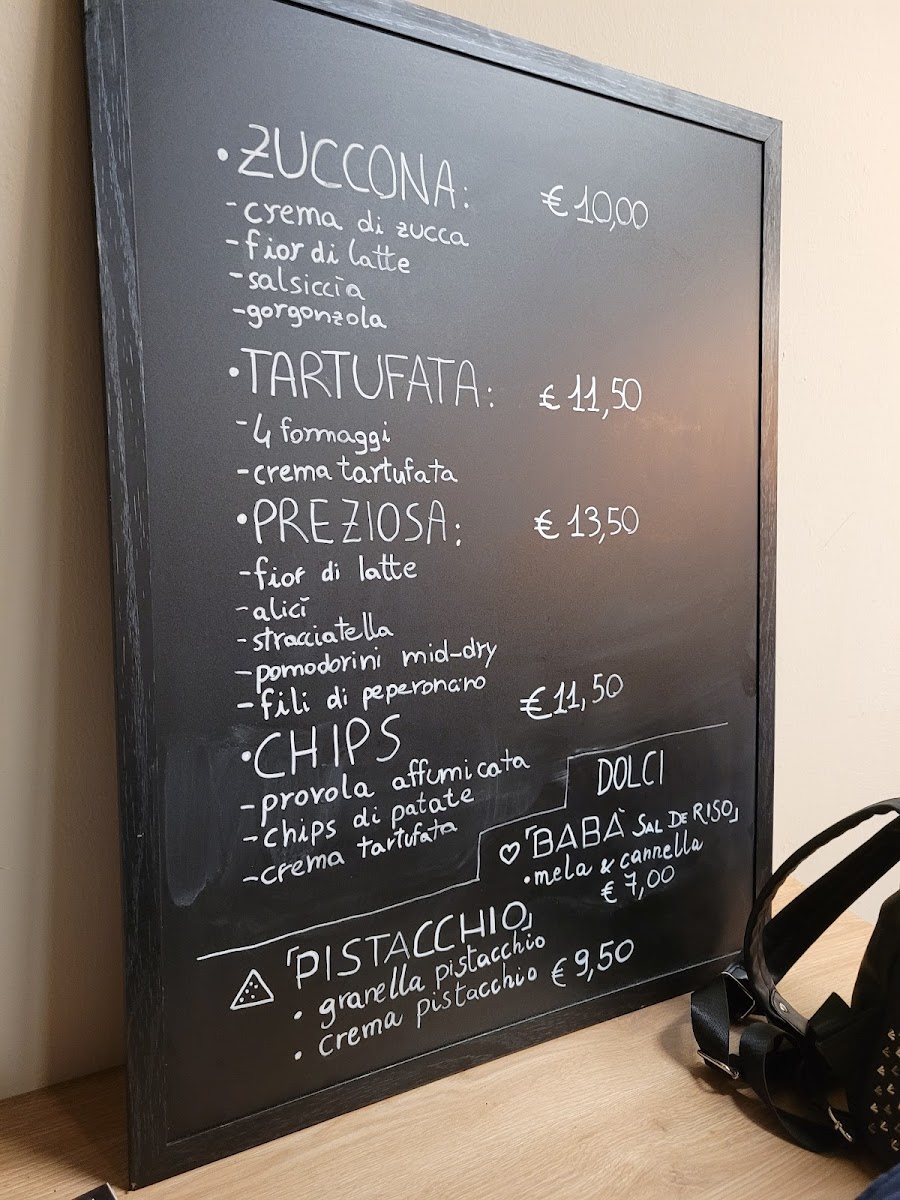 • ZUCCONA: € 10,00
- crema di zucca
- fior di latte
- salsiccia
- gorgonzola
• TARTUFATA: € 11,50
- 4 formaggi
- crema tartufata
• PREZIOSA: € 13,50
- fior di latte
- alici
- stracciatella
- pomodorini mid-dry
- fili di peperoncino
• CHIPS € 11,50
- provola affumicata
- chips di patate
- crema tartufata
DOLCI
♡ 「BABÀ SAL DE RISO」
• mela & cannella
€ 7,00
「PISTACCHIO」
• granella pistacchio
• crema pistacchio € 9,50